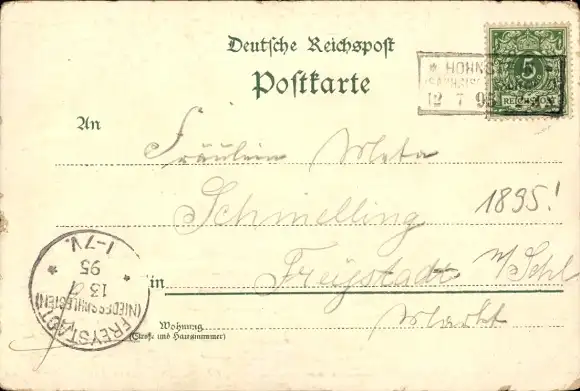 Deutsche Reichspost
Postkarte
* HOHNST
12 7 95
5
REICHSPOST
An
Fräulein Meta
Schmelling
1895!
in Freystadt N/Schl
Markt
Wohnung
(Straße und Hausnummer)
FREYSTADT
(NIEDERSCHLESIEN)
13
95
* *
1-7V.